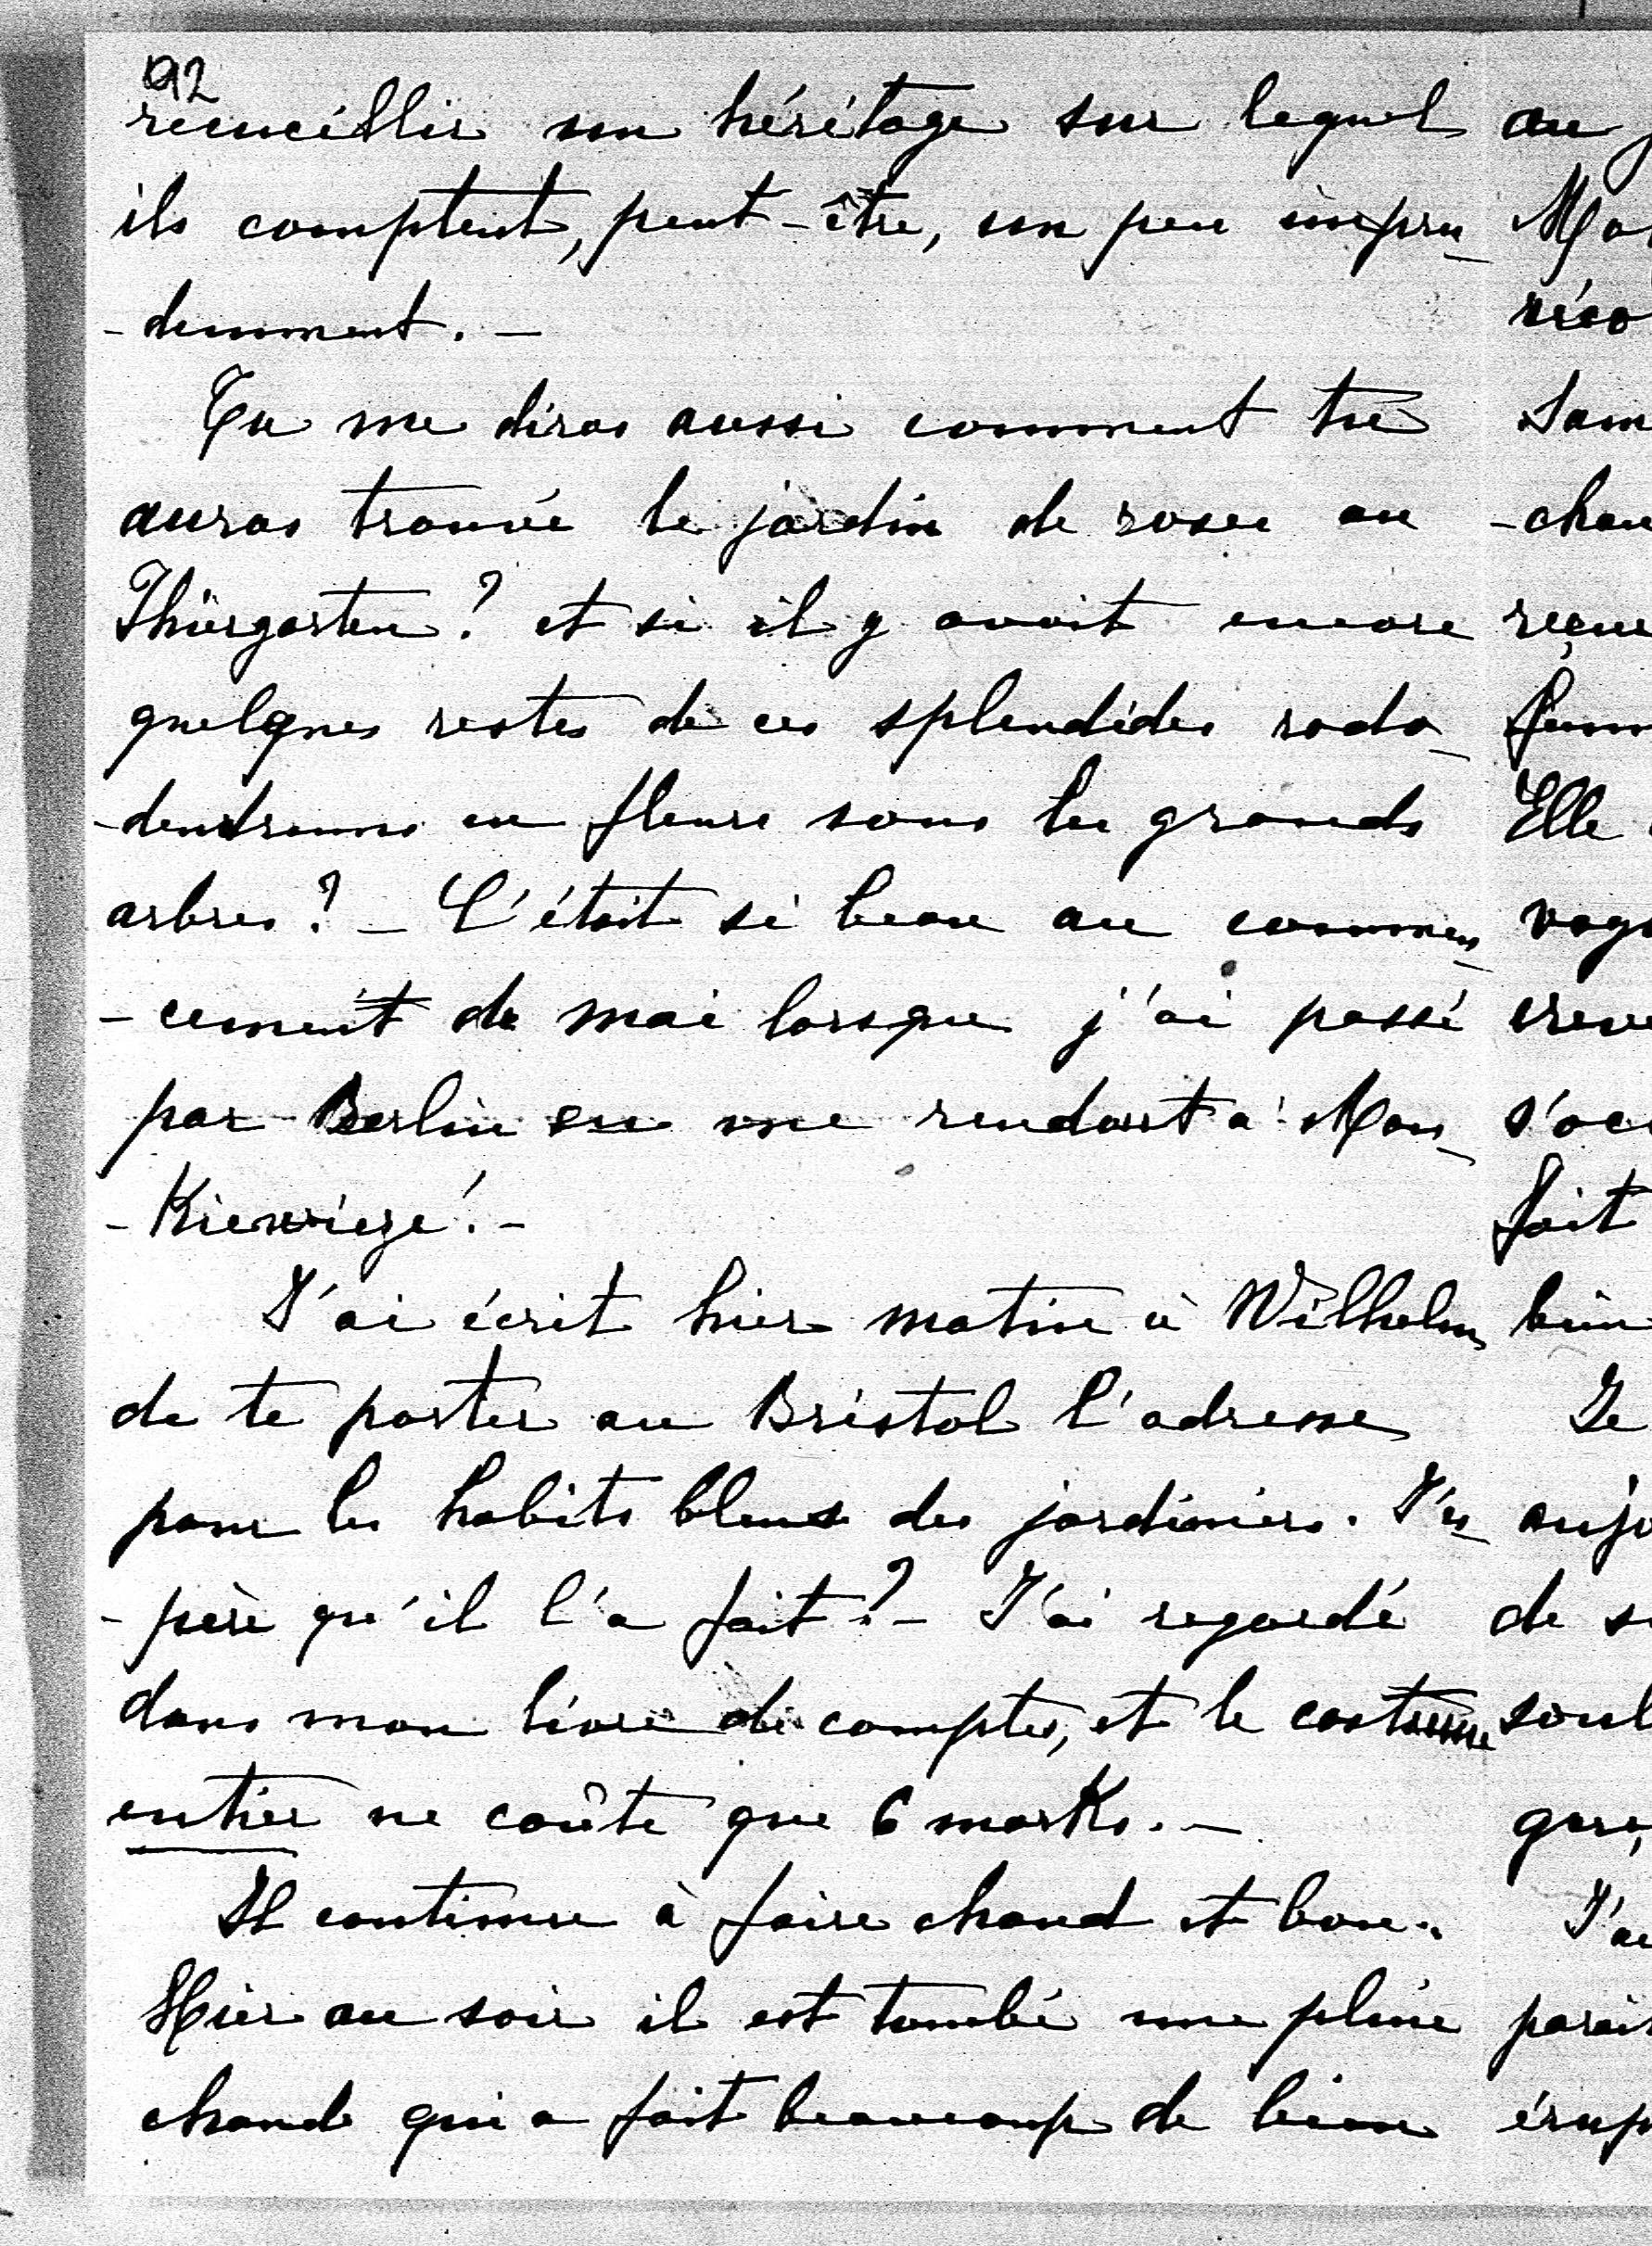 92
recueillir un héritage sur lequel
ils comptent, peut-être, un peu impru-
-demment. -
Tu me diras aussi comment tu
auras trouvé le jardin de roses au
Thiergarten? et si il y avait encore
quelques restes de ces splendides rodo-
-dendrons en fleurs sous les grands
arbres? - C'était si beau au commen-
-cement de mai lorsque j'ai passé
par Berlin en me rendant à Man-
-Kiewiczé! -
J'ai écrit hier matin à Wilhelm
de te porter au Bristol l'adresse
pour les habits bleus des jardiniers. J'es-
-père qu'il l'a fait? - J'ai regardé
dans mon livre de comptes, et le costume
entier ne coûte que 6 marKs. -
Il continue à faire chaud et bon.
Hier au soir il est tombé une pluie
chaude qui a fait beaucoup de bien
au
récol
Elle
fait
Je
de
J'ai